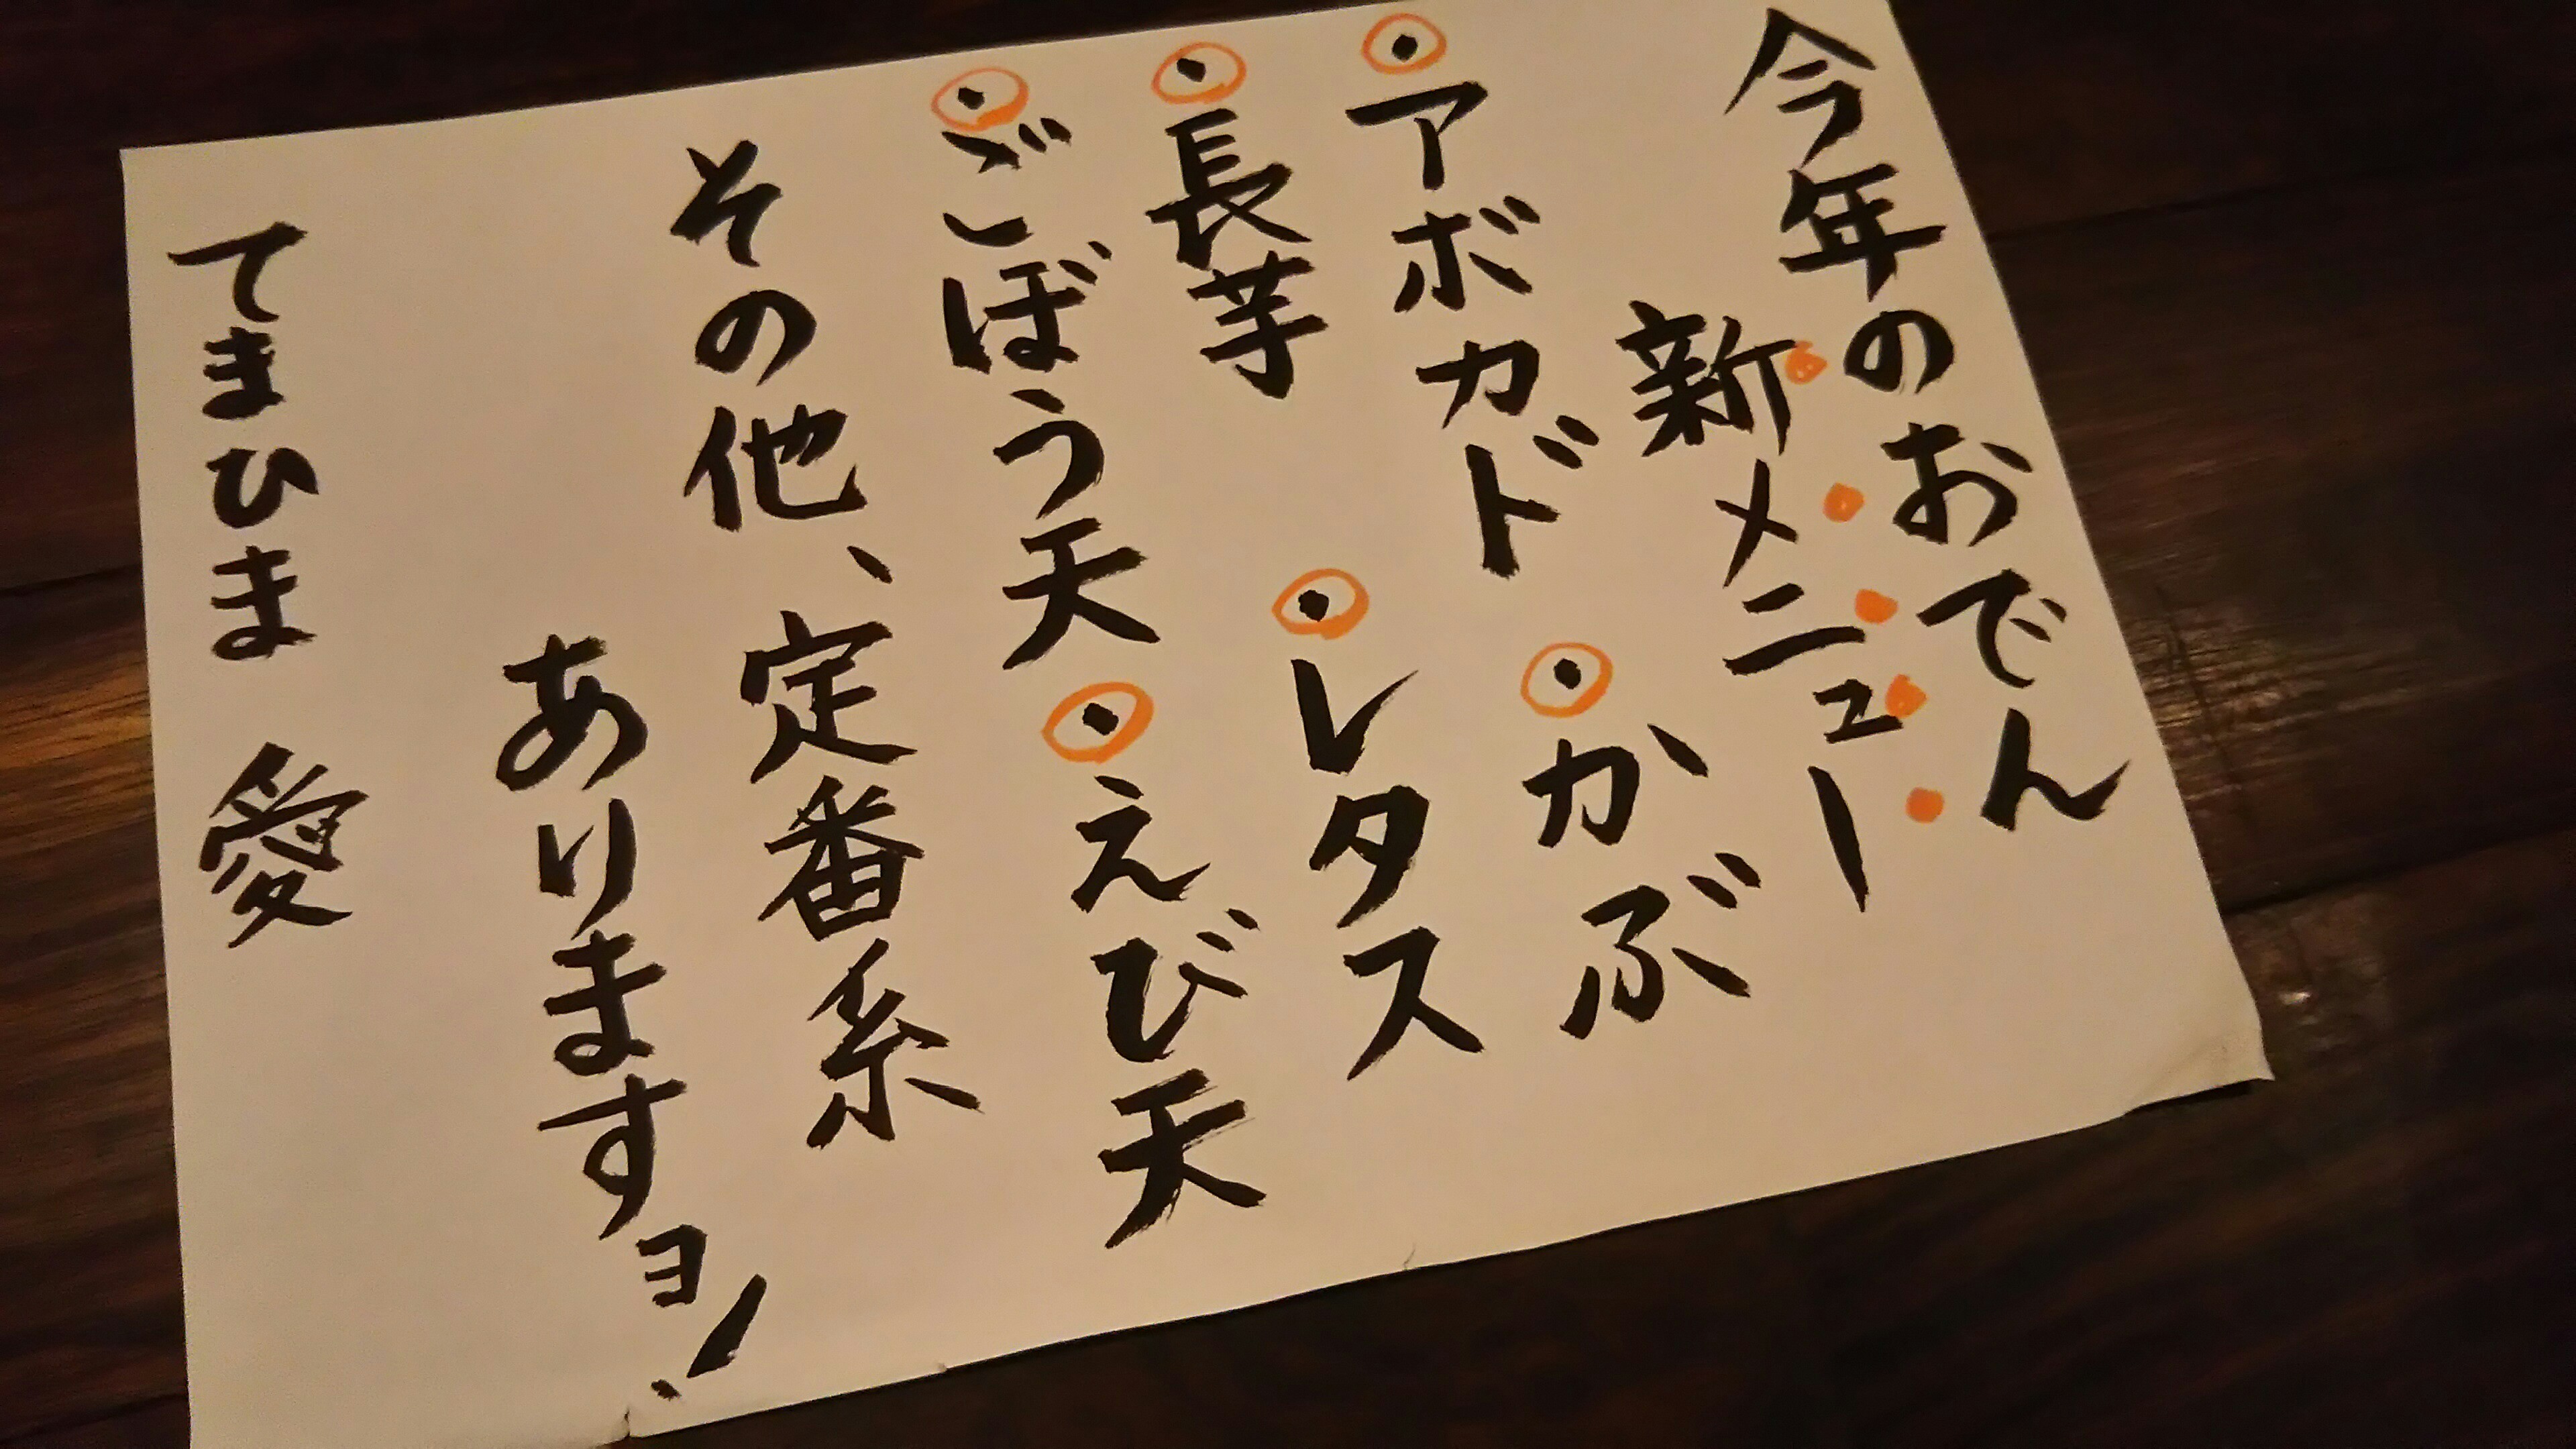 今年のおでん
新メニュー
アボカド
かぶ
長芋
レタス
ごぼう天
えび天
その他、定番系
ありますヨ!
てまひま 愛